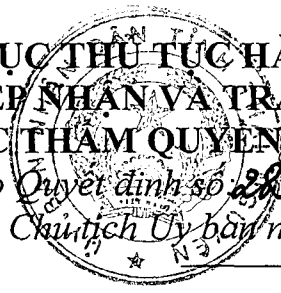 ỤC THỦ TỤC HÀ
ẾP NHẬN VÀ TRẢ
C THẨM QUYỀN
Quyết định số
Chủ tịch Ủy ban n